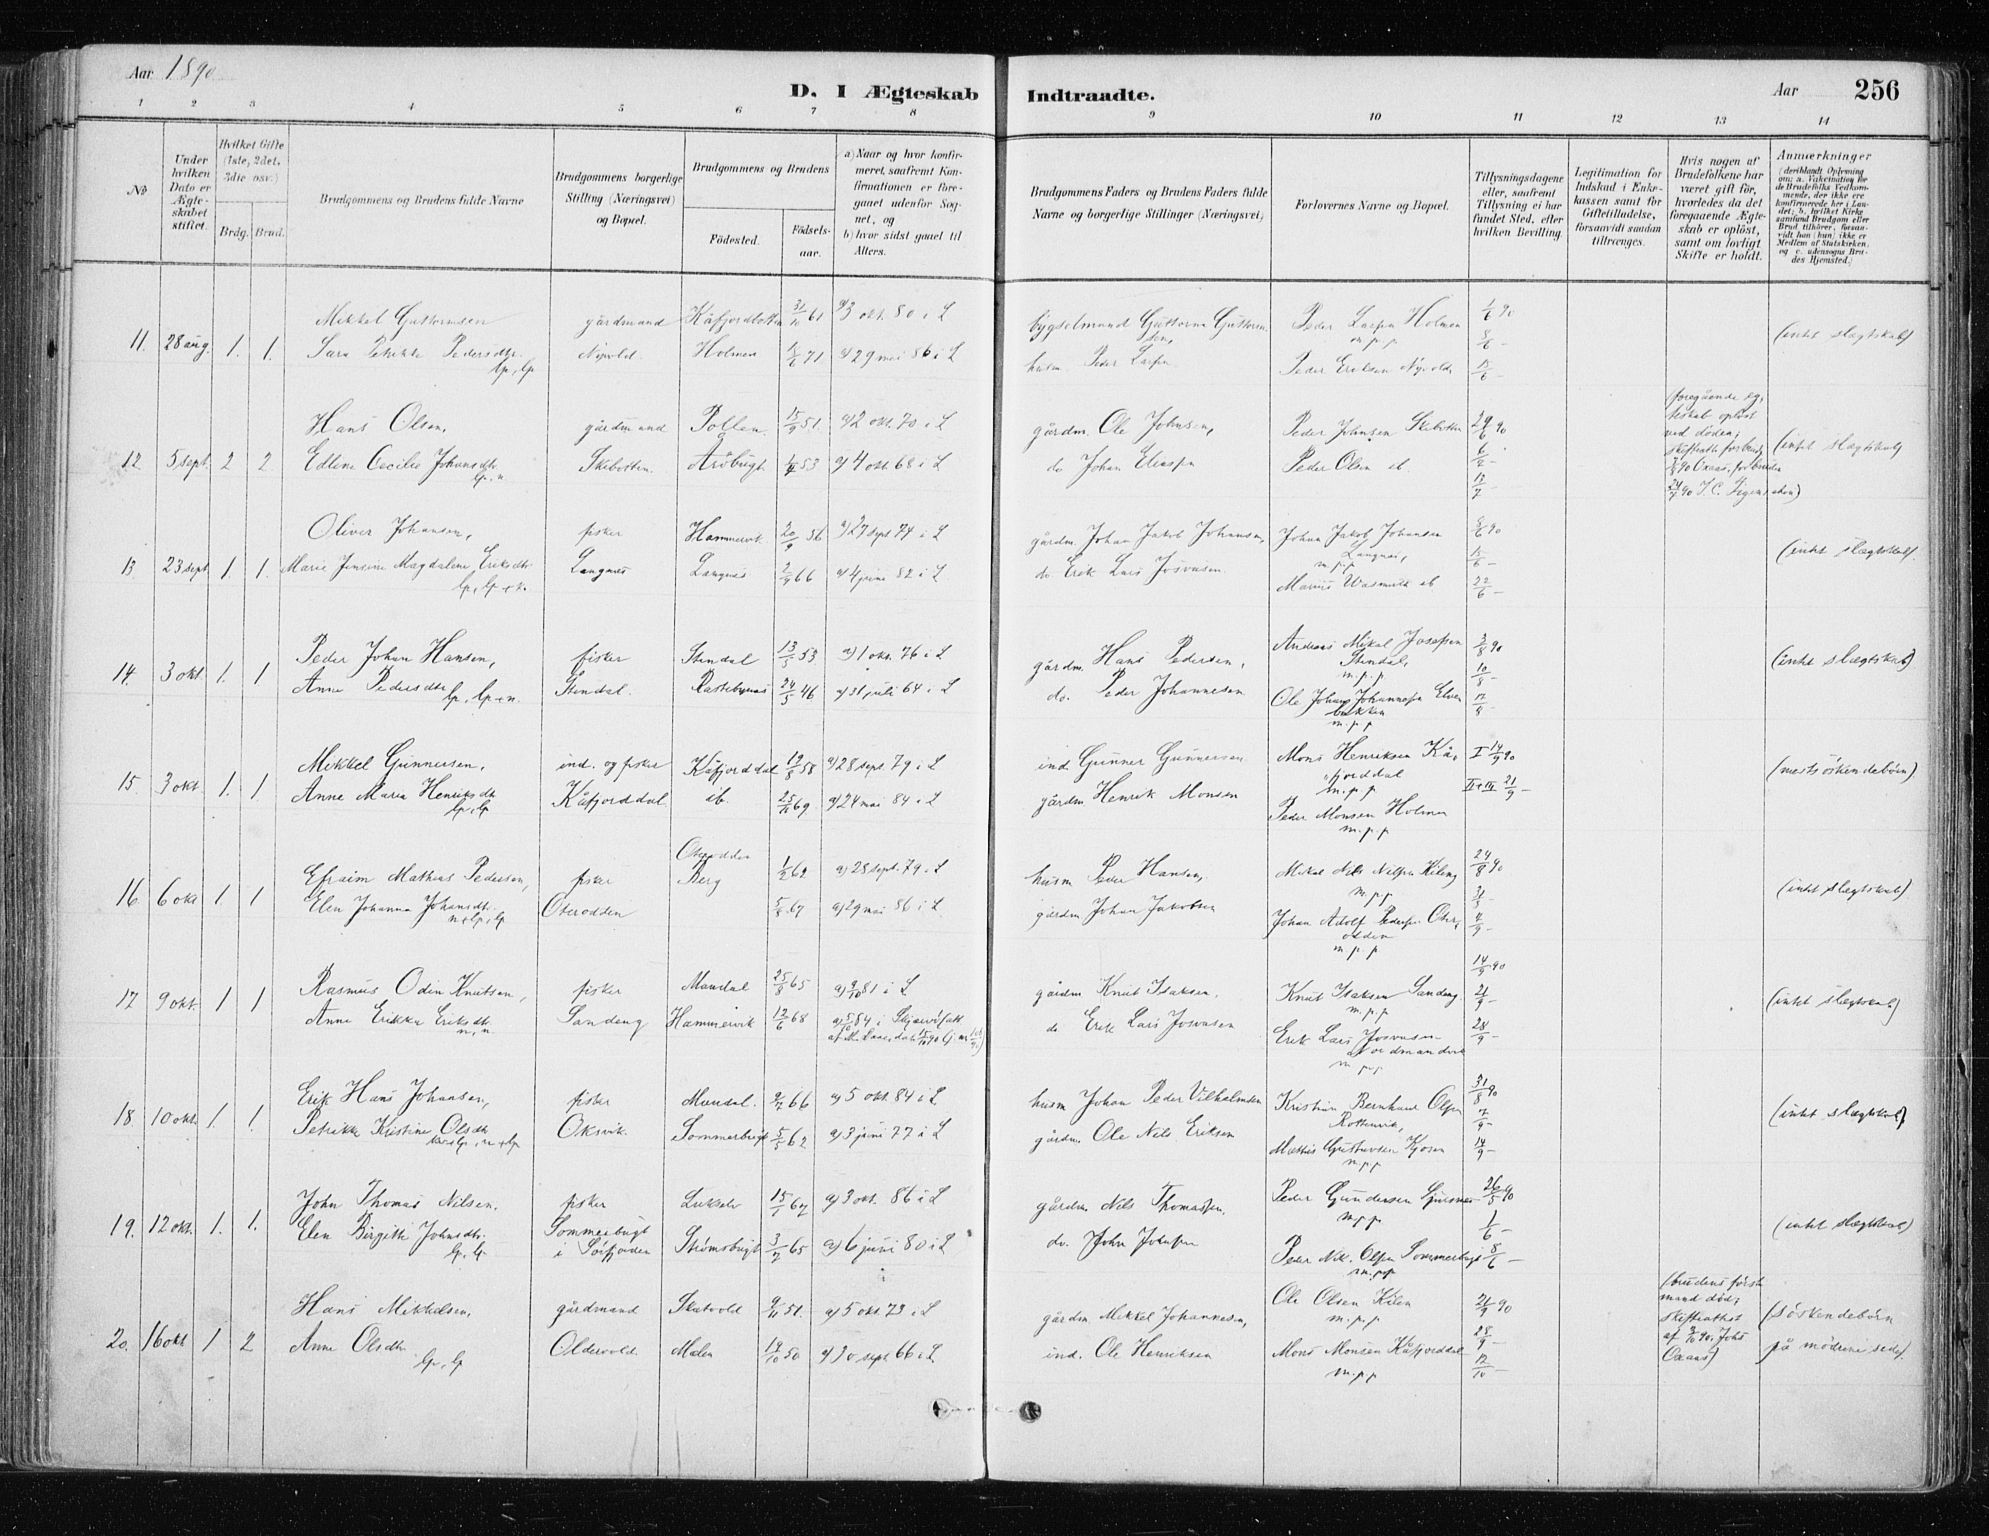 Aar 1890
D. I Ægteskab Indtraadte.
Aar 256
1 2 3 4 5 6 7 8 9 10 11 12 13 14
No
Under hvilken Dato er Ægteskabet stiftet.
Hvilket Gifte (1ste, 2det, 3die osv.)
Brdg. Brud.
Brudgommens og Brudens fulde Navne
Brudgommens borgerlige Stilling (Næringsvei) og Bopæl.
Brudgommens og Brudens
Födested.
Födsels-aar.
a) Naar og hvor konfirmeret, saafremt Konfirmationen er foregaaet udenfor Sognet, og
b) hvor sidst gaaet til Alters.
Brudgommens Faders og Brudens Faders fulde Navne og borgerlige Stillinger (Næringsvei)
Forlovernes Navne og Bopæl.
Tillysningsdagene eller, saafremt Tillysning ei har fundet Sted, efter hvilken Bevilling.
Legitimation for Indskud i Enkekassen samt for Giftetilladelse, forsaavidt saadan tiltrænges.
Hvis nogen af Brudefolkene har været gift för, hvorledes da det foregaaende Ægteskab er oplöst, samt om lovligt Skifte er holdt.
Anmærkninger
(deriblandt Oplysning om: a. Vaccination for de Brudefolks Vedkommende, der ikke ere konfirmerede her i Landet; b. hvilket Kirkesamfund Brudgom eller Brud tilhörer, forsaavidt han (hun) ikke er Medlem af Statskirken, og c. udensogns Brudes Hjemsted.)
11. 28 aug. 1. 1.
Mikkel Guttormsen gårdmand Kåfjordbotten 31/10 61 a) 3 okt. 80 i L
bygselmand Guttorm Guttormsen, Peder Larsen Holmen m.p.p 1/6 90 8/6 –
Sara Petrikke Pedersdtr. lp, lp Nyvold. Holmen 71 a) 29 mai 86 i L
husm. Peder Larsen Peder Eriksen Nyvold 15/6 –
(intet slægtskab)
12. 5 sept. 2 2
Hans Olsen, gårdmand Pollen 15/9 51. a) 2 okt. 70 i L
gårdm. Ole Johnsen, Peder Johnsen Skibotten 29/6 90
Edlene Cecilie Johansdtr. lp, n. Skibotten. Aröbugt 53 a) 4 okt. 68 i L
do Johan Eliassen Peder Olsen ib. 13/7 –
(foregående egteskab oplöst ved döden; skifteatt. 90 Oxaas, 24/7 90 J. C.
(intet slægtskab)
13 23 sept 1. 1.
Oliver Johansen, fisker Hammervik. 20/9 56 a) 27 sept. 74 i L
gårdm. Johan Jakob Johansen, Johan Jakob Johansen Langnes, m.p.p 8/6 90 15/6 –
Marie Jensine Magdalene Eriksdtr. lp, lp + n. Langnes Langnes 2/9 66 a) 4 juni 82 i L
do. Erik Lars Josvasen. Marius Wasmuth ib 22/6 –
(intet slægtskab).
14. 3 okt. 1. 1
Peder Johan Hansen, fisker Stendal 13/5 53 a) 1 okt. 76 i L
gårdm. Hans Pedersen, Andreas Mikal Josefsen Stendal, m.p.p 3/8 90 10/8 –
Anne Pedersdtr. lp, lp + n. Stendal. Rastebynes 24/5 46 a) 31 juli 64 i L
do. Peder Johannesen Ole Johan Johannesen Elvebakken m.p.p 17/8 –
(intet slægtskab)
15. 3 okt 1. 1
Mikkel Gunnersen, ind. og fisker Kåfjorddal 17/8 58 a) 28 sept. 79 i L
ind. Gunner Gunnersen Mons Henriksen Kåfjorddal m.p.p I 14/9 90
Anne Maria Henriksdtr. lp, lp Kåfjorddal ib. 25/11 69 a) 24 mai 84 i L
gårdm. Henrik Monsen Peder Monsen Holmen m.p.p II+III 21/9 –
(næstsöskendebörn)
16. 6 okt 1 1
Efraim Mathias Pedersen, fisker Oterodden Berg 62 a) 28 sept. 79 i L
husm Peder Hansen, Mikal Nils Nilsen Kileng m.p.p 24/8 90
Elen Johanna Johansdtr. n + lp, lp Oterodden 5/8 67 a) 29 mai 86 i L
gårdm. Johan Jakobsen Johan Adolf Pedersen Oterodden m.p.p
(intet slægtskab)
17 9 okt. 1 1
Rasmus Odin Knutsen, fisker Mandal 25/8 65 a) 9/10 81 i L
gårdm Knut Isaksen, Knut Isaksen Sandeng m.p.p 14/9 90 21/9 –
Anne Erikka Eriksdtr. n, n Sandeng Hammervik 12/6 68 a) 84 i Skjærvö (att.
do Erik Lars Josvasen Erik Lars Josvasen m.p.p 28/9 –
(intet slægtskab)
18 10 okt. 1. 1.
Erik Hans Johansen, fisker Mandal. 9/7 66 a) 5 okt. 84 i L
husm Johan Peder Vilhelmsen Kristian Bernhard Olsen Rottenvik, 31/8 90 7/9 –
Petrikke Kristine Olsdtr. Oksvik. Sommerbugt 5/5 62 a) 3 juni 77 i L
gårdm. Ole Nils Eriksen Mathis Gustavsen Kjosen m.p.p 14/9 –
(intet slægtskab)
19. 12 okt. 1. 1.
John Thomas Nilsen, fisker 15/1 67 a) 3 okt. 86 i L
gårdm Nils Thomassen, Peder Gundersen m.p.p 26/5 90 1/6 –
Elen Birgitte Johnsdtr. lp, lp Sommerbugt i Sörfjorden Strömsbugt 3/7 65 a) 6 juni 80 i L
do. John Johnsen Peder Nik. Olsen Sommerbugt m.p.p 8/6 –
(intet slægtskab)
20. 16 okt 1 2
Hans Mikkelsen, gårdmand Skatvold 9/11 51. a) 5 okt. 73 i L
gårdm. Mikkel Johannesen, Ole Olsen Kilen m.p.p 21/9 90 28/9 –
Anne Olsdtr. lp, lp Oldervold Malen 50 a) 30 sept. 66 i L
ind. Ole Henriksen Mons Monsen Kåfjorddal m.p.p 12/10 –
(brudens förste mand död; skifteattest af 90, Johs Oxaas)
(söskendebörn på mödrene side).